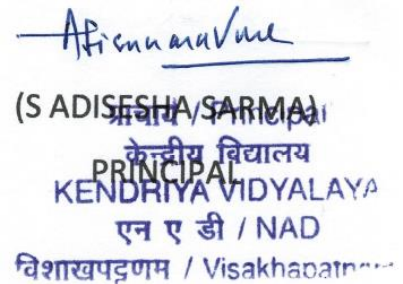 (S ADISESHA SARMA)
प्राचार्य / Principal
केन्द्रीय विद्यालय
PRINCIPAL
KENDRIYA VIDYALAYA
एन ए डी / NAD
विशाखपट्टणम / Visakhapatnam